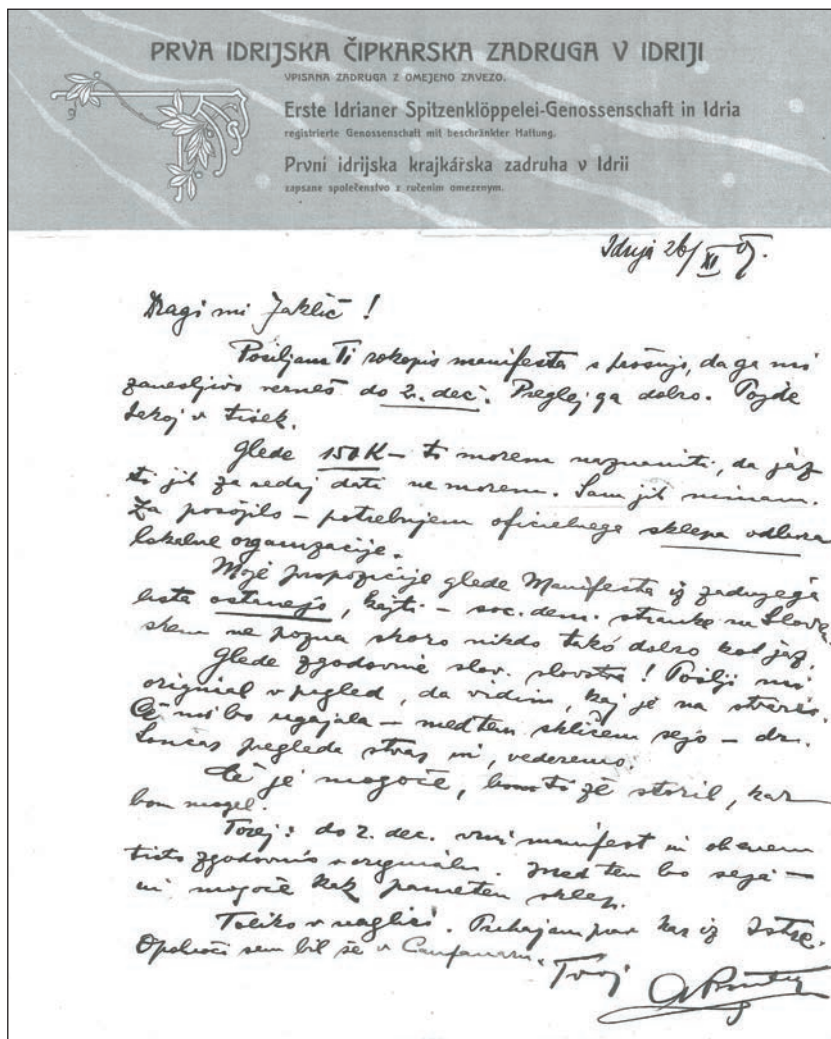 PRVA IDRIJSKA ČIPKARSKA ZADRUGA V IDRIJI
VPISANA ZADRUGA Z OMEJENO ZAVEZO.
Erste Idrianer Spitzenklöppelei-Genossenschaft in Idria
registrierte Genossenschaft mit beschränkter Haftung.
Prvni idrijska krajkárska zadruha v Idrii
zapsane společenstvo z ručenim omezenym.
Idrija 26/XI 07.
Dragi mi Jaklič!
Pošiljam Ti rokopis manifesta s prošnjo, da ga mi
zanesljivo verneš do 2. dec. Preglej ga dobro. Pojde
tekoj v tisek.
Glede 150 K – ti morem naznaniti, da jaz
ti jih za sedaj dati ne morem. Sam jih nimam.
Za posojilo – potrebujem oficielnega sklepa odbora
lokalne organizacije.
Moje propozicije glede Manifesta iz zadnjega
lista ostanejo, kajti – soc. dem. stranke na Sloven-
skem ne pozna skoro nikdo tako dobro kot jaz.
Glede zgodovine slov. slovstva! Pošlji mi
original v pregled, da vidim, kaj je na stvari.
Če mi bo ugajala – medtem skličem sejo – dr.
Lončar pregleda stvar in, vederemo.
Če je mogoče, bom ti že storil, kar
bom mogel.
Torej: do 2. dec. vrni manifest in obenem
tisto zgodovino v originalu. Med tem bo seja –
in mogoče kak pameten sklep.
Toliko v naglici. Prihajam prav kar iz Istre.
Opolnoči sem bil še v Canfanaru.
Tvoj